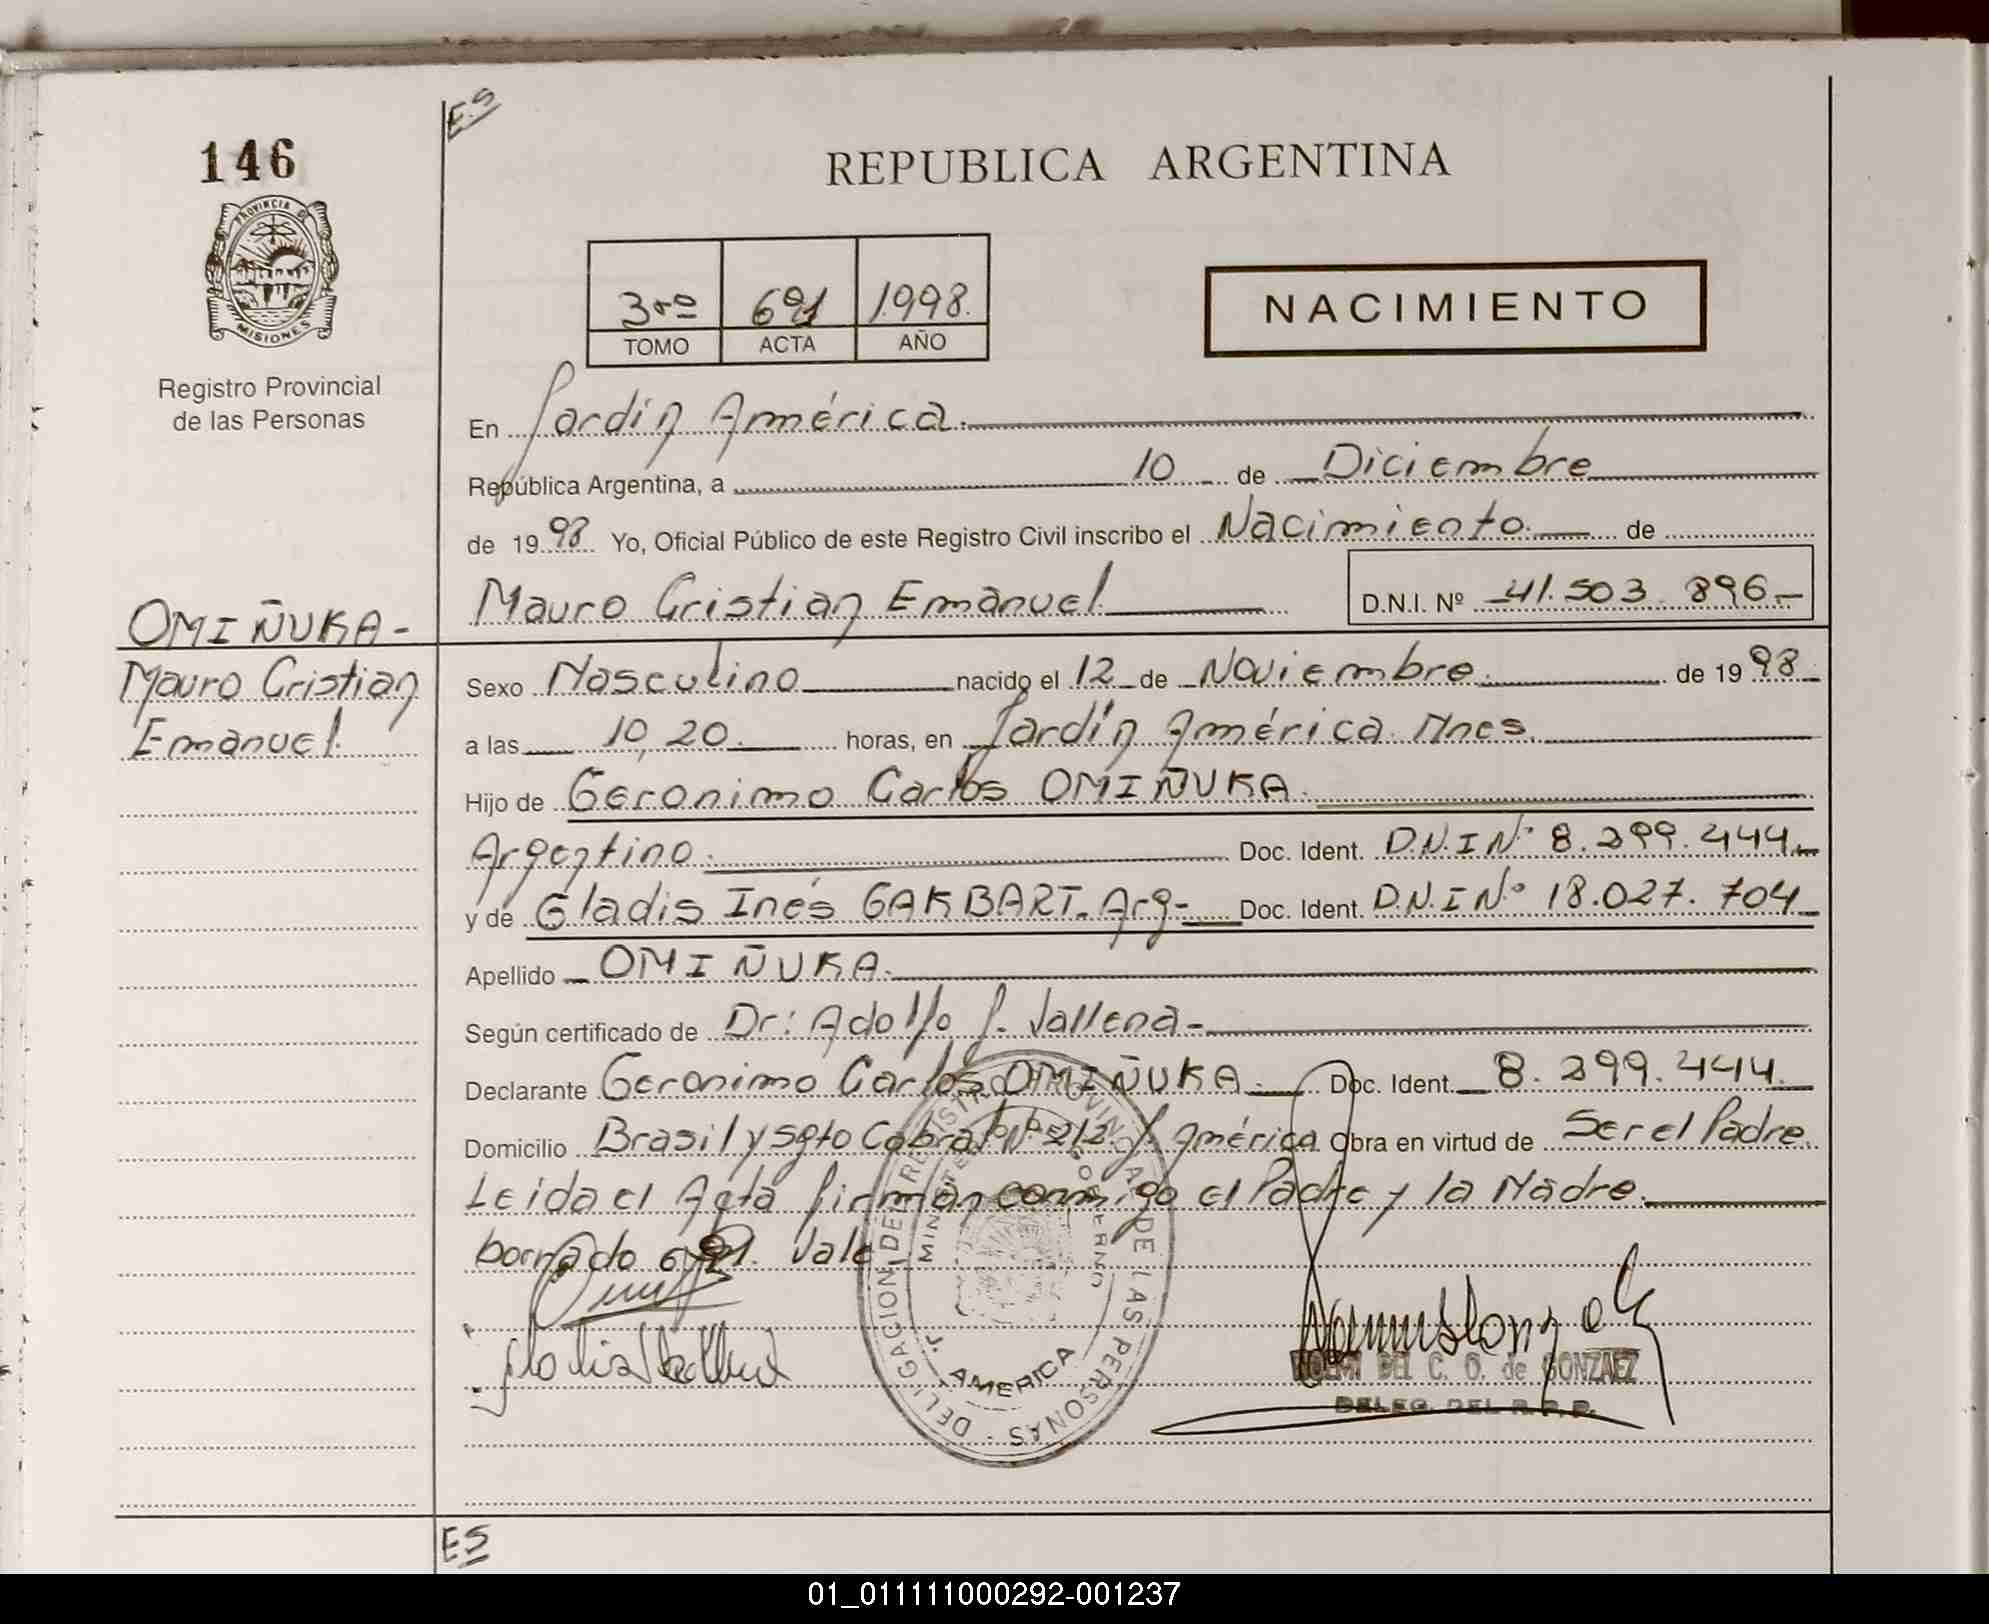 E.S
146
REPUBLICA ARGENTINA
PROVINCIA DE
MISIONES
3ro 691 1998.
TOMO ACTA AÑO
NACIMIENTO
Registro Provincial
de las Personas
En Jardín América.
República Argentina, a 10 de Diciembre
de 19 98 Yo, Oficial Público de este Registro Civil inscribo el Nacimiento. de
Mauro Cristian Emanuel D.N.I. Nº 41.503.896.-
OMIÑUKA-
Mauro Cristian
Emanuel.
Sexo Masculino nacido el 12 de Noviembre. de 19 98.
a las 10,20. horas, en Jardín América. Mnes.
Hijo de Geronimo Carlos OMIÑUKA.
Argentino. Doc. Ident. D.N.I Nº 8.299.444.-
y de Gladis Inés GAKBART. Arg- Doc. Ident. D.N.I Nº 18.027.704
Apellido OMIÑUKA.
Según certificado de Dr: Adolfo J. Vallena-
Declarante Geronimo Carlos OMIÑUKA. Doc. Ident. 8.299.444.
Domicilio Brasil y sgto Cabral Nº 212. J. América Obra en virtud de Ser el Padre.
Leida el Acta firman conmigo el Padre y la Madre.
borrado 691. Vale
DELIGACION DEL REGISTRO PROVINCIAL DE LAS PERSONAS
J. AMERICA
DEL C. O. de GONZAEZ
DELEG. DEL R.P.P.
ES
01_011111000292-001237